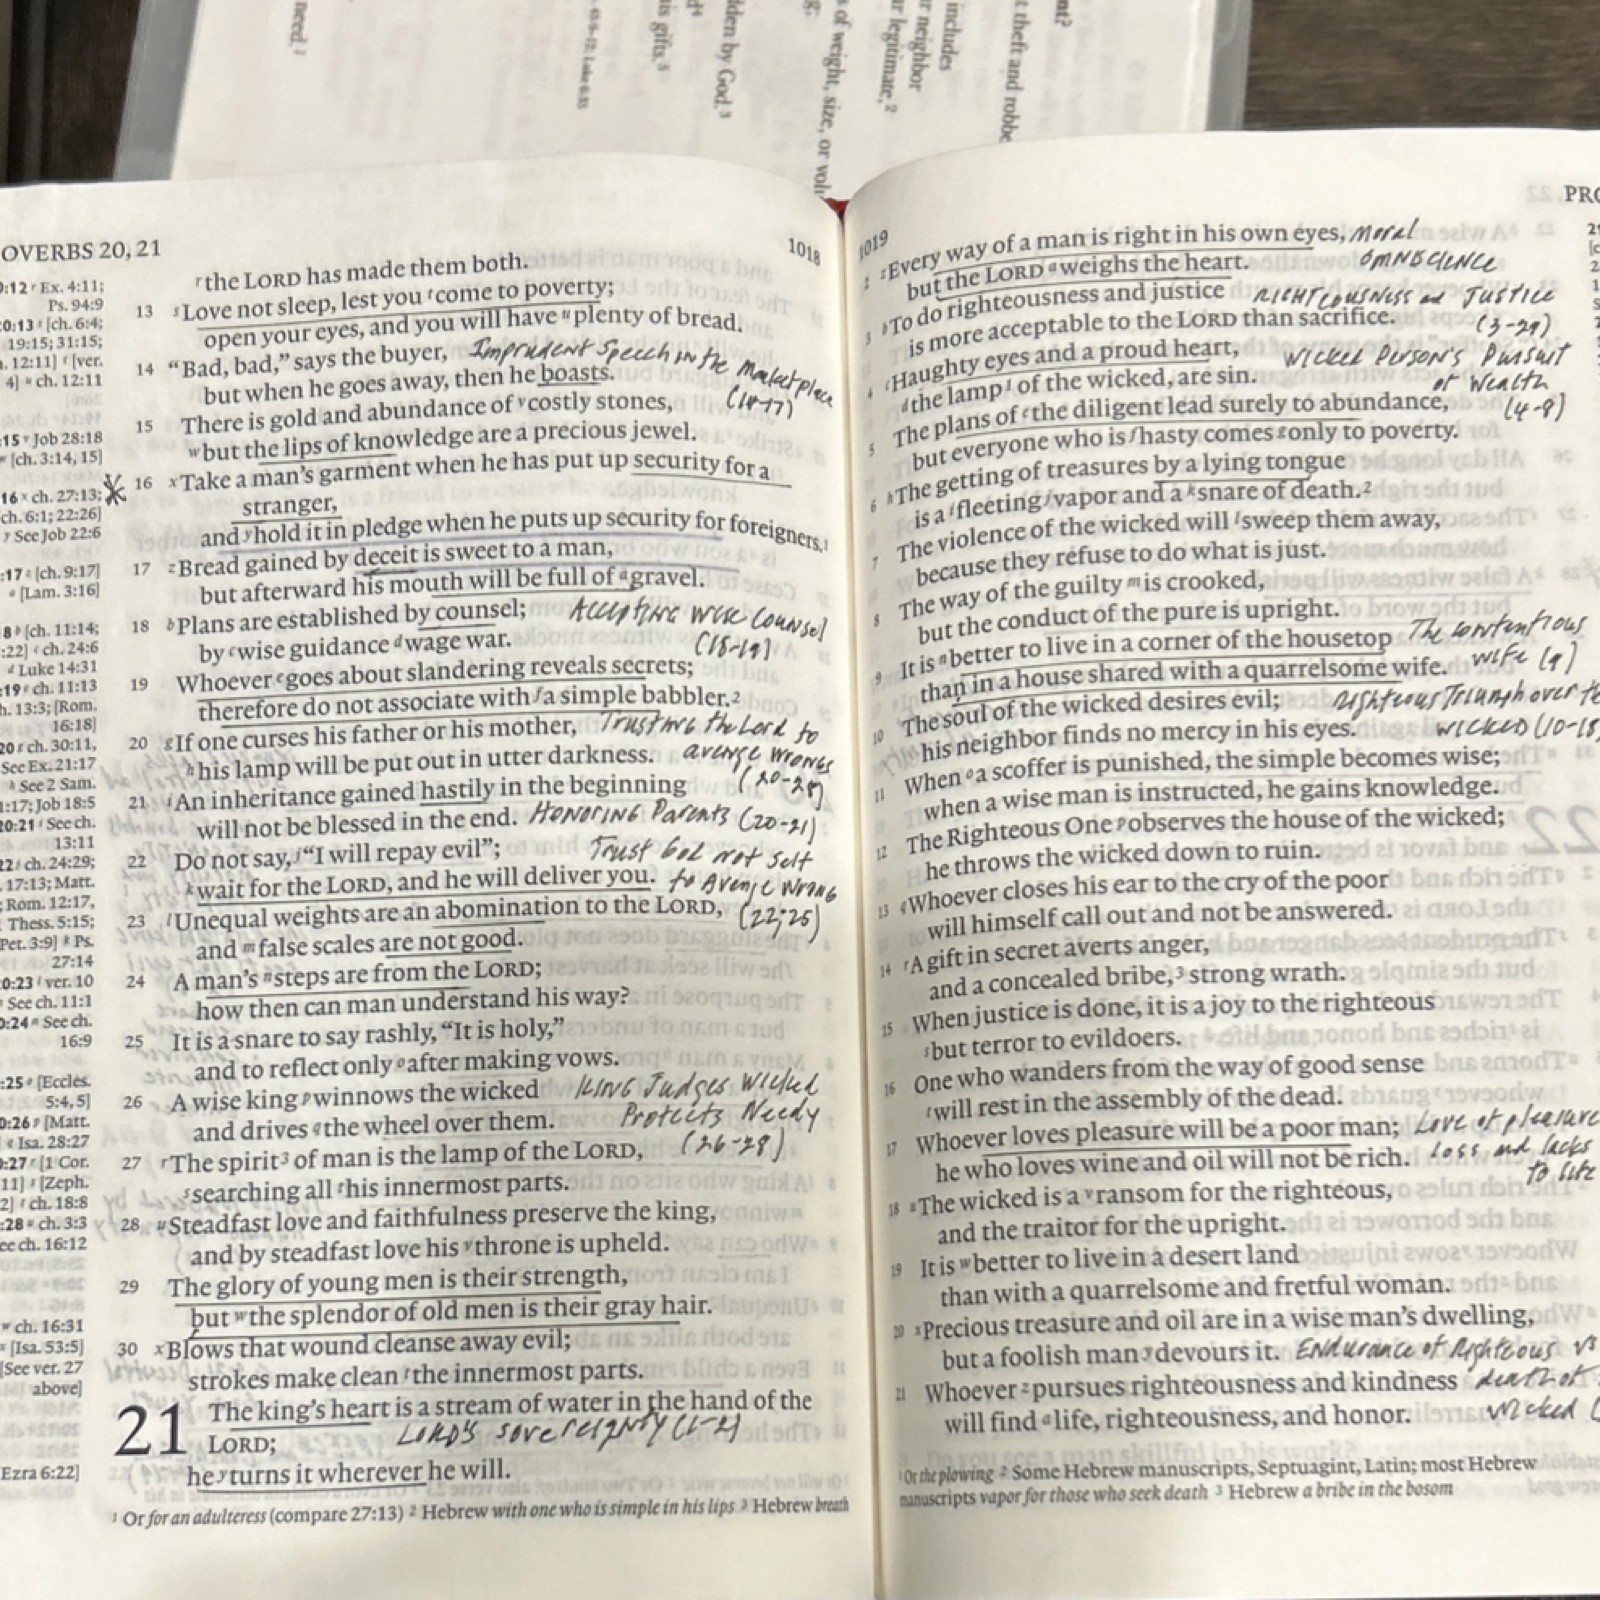 need.²
43:9-12; Luke 6:35
is gifts.⁵
dden by God,³
s of weight, size, or
r legitimate,²
r neighbor
includes
t theft and robbe
nt?
OVERBS 20, 21
1018
0:12 ʳ Ex. 4:11;
Ps. 94:9
0:13 ˢ [ch. 6:4;
19:15; 31:15;
12:11] ᵗ [ver.
4] ᵘ ch. 12:11
:15 ᵛ Job 28:18
ʷ [ch. 3:14, 15]
16 ˣ ch. 27:13;
ch. 6:1; 22:26]
ʸ See Job 22:6
:17 ᶻ [ch. 9:17]
ᵃ [Lam. 3:16]
8 ᵇ [ch. 11:14;
:22] ᶜ ch. 24:6
ᵈ Luke 14:31
:19 ᵉ ch. 11:13
h. 13:3; [Rom.
16:18]
20 ᵍ ch. 30:11,
See Ex. 21:17
ʰ See 2 Sam.
1:17; Job 18:5
20:21 ⁱ See ch.
13:11
22 ʲ ch. 24:29;
17:13; Matt.
; Rom. 12:17,
Thess. 5:15;
Pet. 3:9] ᵏ Ps.
27:14
0:23 ˡ ver. 10
See ch. 11:1
0:24 ⁿ See ch.
16:9
:25 ᵒ [Eccles.
5:4, 5]
0:26 ᵖ [Matt.
ᑫ Isa. 28:27
0:27 ʳ [1 Cor.
11] ˢ [Zeph.
2] ᵗ ch. 18:8
:28 ᵘ ch. 3:3
ee ch. 16:12
ʷ ch. 16:31
ˣ [Isa. 53:5]
[See ver. 27
above]
Ezra 6:22]
ʳ the LORD has made them both.
13 ˢ Love not sleep, lest you ᵗ come to poverty;
open your eyes, and you will have ᵘ plenty of bread.
14 “Bad, bad,” says the buyer, Imprudent Speech in the marketplace
but when he goes away, then he boasts. (14-17)
15 There is gold and abundance of ᵛ costly stones,
ʷ but the lips of knowledge are a precious jewel.
16 ˣ Take a man’s garment when he has put up security for a
stranger,
and ʸ hold it in pledge when he puts up security for foreigners.¹
17 ᶻ Bread gained by deceit is sweet to a man,
but afterward his mouth will be full of ᵃ gravel.
18 ᵇ Plans are established by counsel; Accepting wise counsel
by ᶜ wise guidance ᵈ wage war. (18-19)
19 Whoever ᵉ goes about slandering reveals secrets;
therefore do not associate with ᶠ a simple babbler.²
20 ᵍ If one curses his father or his mother, Trusting the Lord to
ʰ his lamp will be put out in utter darkness. avenge wrongs
21 ⁱ An inheritance gained hastily in the beginning (20-28)
will not be blessed in the end. Honoring Parents (20-21)
22 Do not say, ʲ “I will repay evil”; Trust God not self
ᵏ wait for the LORD, and he will deliver you. to Avenge wrong
23 ˡ Unequal weights are an abomination to the LORD, (22-25)
and ᵐ false scales are not good.
24 A man’s ⁿ steps are from the LORD;
how then can man understand his way?
25 It is a snare to say rashly, “It is holy,”
and to reflect only ᵒ after making vows.
26 A wise king ᵖ winnows the wicked King Judges Wicked
and drives ᑫ the wheel over them. Protects Needy
27 ʳ The spirit³ of man is the lamp of the LORD, (26-28)
ˢ searching all ᵗ his innermost parts.
28 ᵘ Steadfast love and faithfulness preserve the king,
and by steadfast love his ᵛ throne is upheld.
29 The glory of young men is their strength,
but ʷ the splendor of old men is their gray hair.
30 ˣ Blows that wound cleanse away evil;
strokes make clean ᵗ the innermost parts.
21 The king’s heart is a stream of water in the hand of the
LORD; LORD'S sovereignty (1-2)
he ʸ turns it wherever he will.
¹ Or for an adulteress (compare 27:13) ² Hebrew with one who is simple in his lips ³ Hebrew breath
1019
PRO
2 ᶻ Every way of a man is right in his own eyes, moral
but the LORD ᵃ weighs the heart. OMNISCIENCE
3 ᵇ To do righteousness and justice RIGHTEOUSNESS and JUSTICE
is more acceptable to the LORD than sacrifice. (3-29)
4 ᶜ Haughty eyes and a proud heart, WICKED PERSON'S PURSUIT
ᵈ the lamp¹ of the wicked, are sin. of Wealth
5 The plans of ᵉ the diligent lead surely to abundance, (4-8)
but everyone who is ᶠ hasty comes ᵍ only to poverty.
6 ʰ The getting of treasures by a lying tongue
is a ⁱ fleeting ʲ vapor and a ᵏ snare of death.²
7 The violence of the wicked will ˡ sweep them away,
because they refuse to do what is just.
8 The way of the guilty ᵐ is crooked,
but the conduct of the pure is upright.
9 It is ⁿ better to live in a corner of the housetop The contentious
than in a house shared with a quarrelsome wife. wife (9)
10 The soul of the wicked desires evil; Righteous Triumph over the
his neighbor finds no mercy in his eyes. WICKED (10-18
11 When ᵒ a scoffer is punished, the simple becomes wise;
when a wise man is instructed, he gains knowledge.
12 The Righteous One ᵖ observes the house of the wicked;
he throws the wicked down to ruin.
13 ᑫ Whoever closes his ear to the cry of the poor
will himself call out and not be answered.
14 ʳ A gift in secret averts anger,
and a concealed bribe,³ strong wrath.
15 When justice is done, it is a joy to the righteous
ˢ but terror to evildoers.
16 One who wanders from the way of good sense
ᵗ will rest in the assembly of the dead.
17 Whoever loves pleasure will be a poor man; Love of pleasure
he who loves wine and oil will not be rich. Loss and lacks
to life
18 ᵘ The wicked is a ᵛ ransom for the righteous,
and the traitor for the upright.
19 It is ʷ better to live in a desert land
than with a quarrelsome and fretful woman.
20 ˣ Precious treasure and oil are in a wise man’s dwelling,
but a foolish man ʸ devours it. Endurance of Righteous vs
21 Whoever ᶻ pursues righteousness and kindness death of
will find ᵃ life, righteousness, and honor. wicked (
¹ Or the plowing ² Some Hebrew manuscripts, Septuagint, Latin; most Hebrew
manuscripts vapor for those who seek death ³ Hebrew a bribe in the bosom